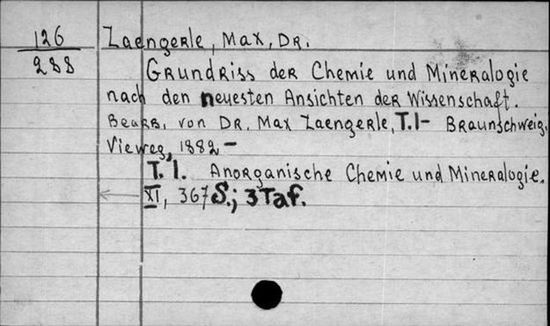 126
288
Zaengerle, Max, Dr.
Grundriss der Chemie und Mineralogie
nach den neuesten Ansichten der Wissenschaft.
Bearb. von Dr. Max Zaengerle, T.1- Braunschweig,
Vieweg, 1882-
T.1. Anorganische Chemie und Mineralogie.
XI, 367 S.; 3 Taf.